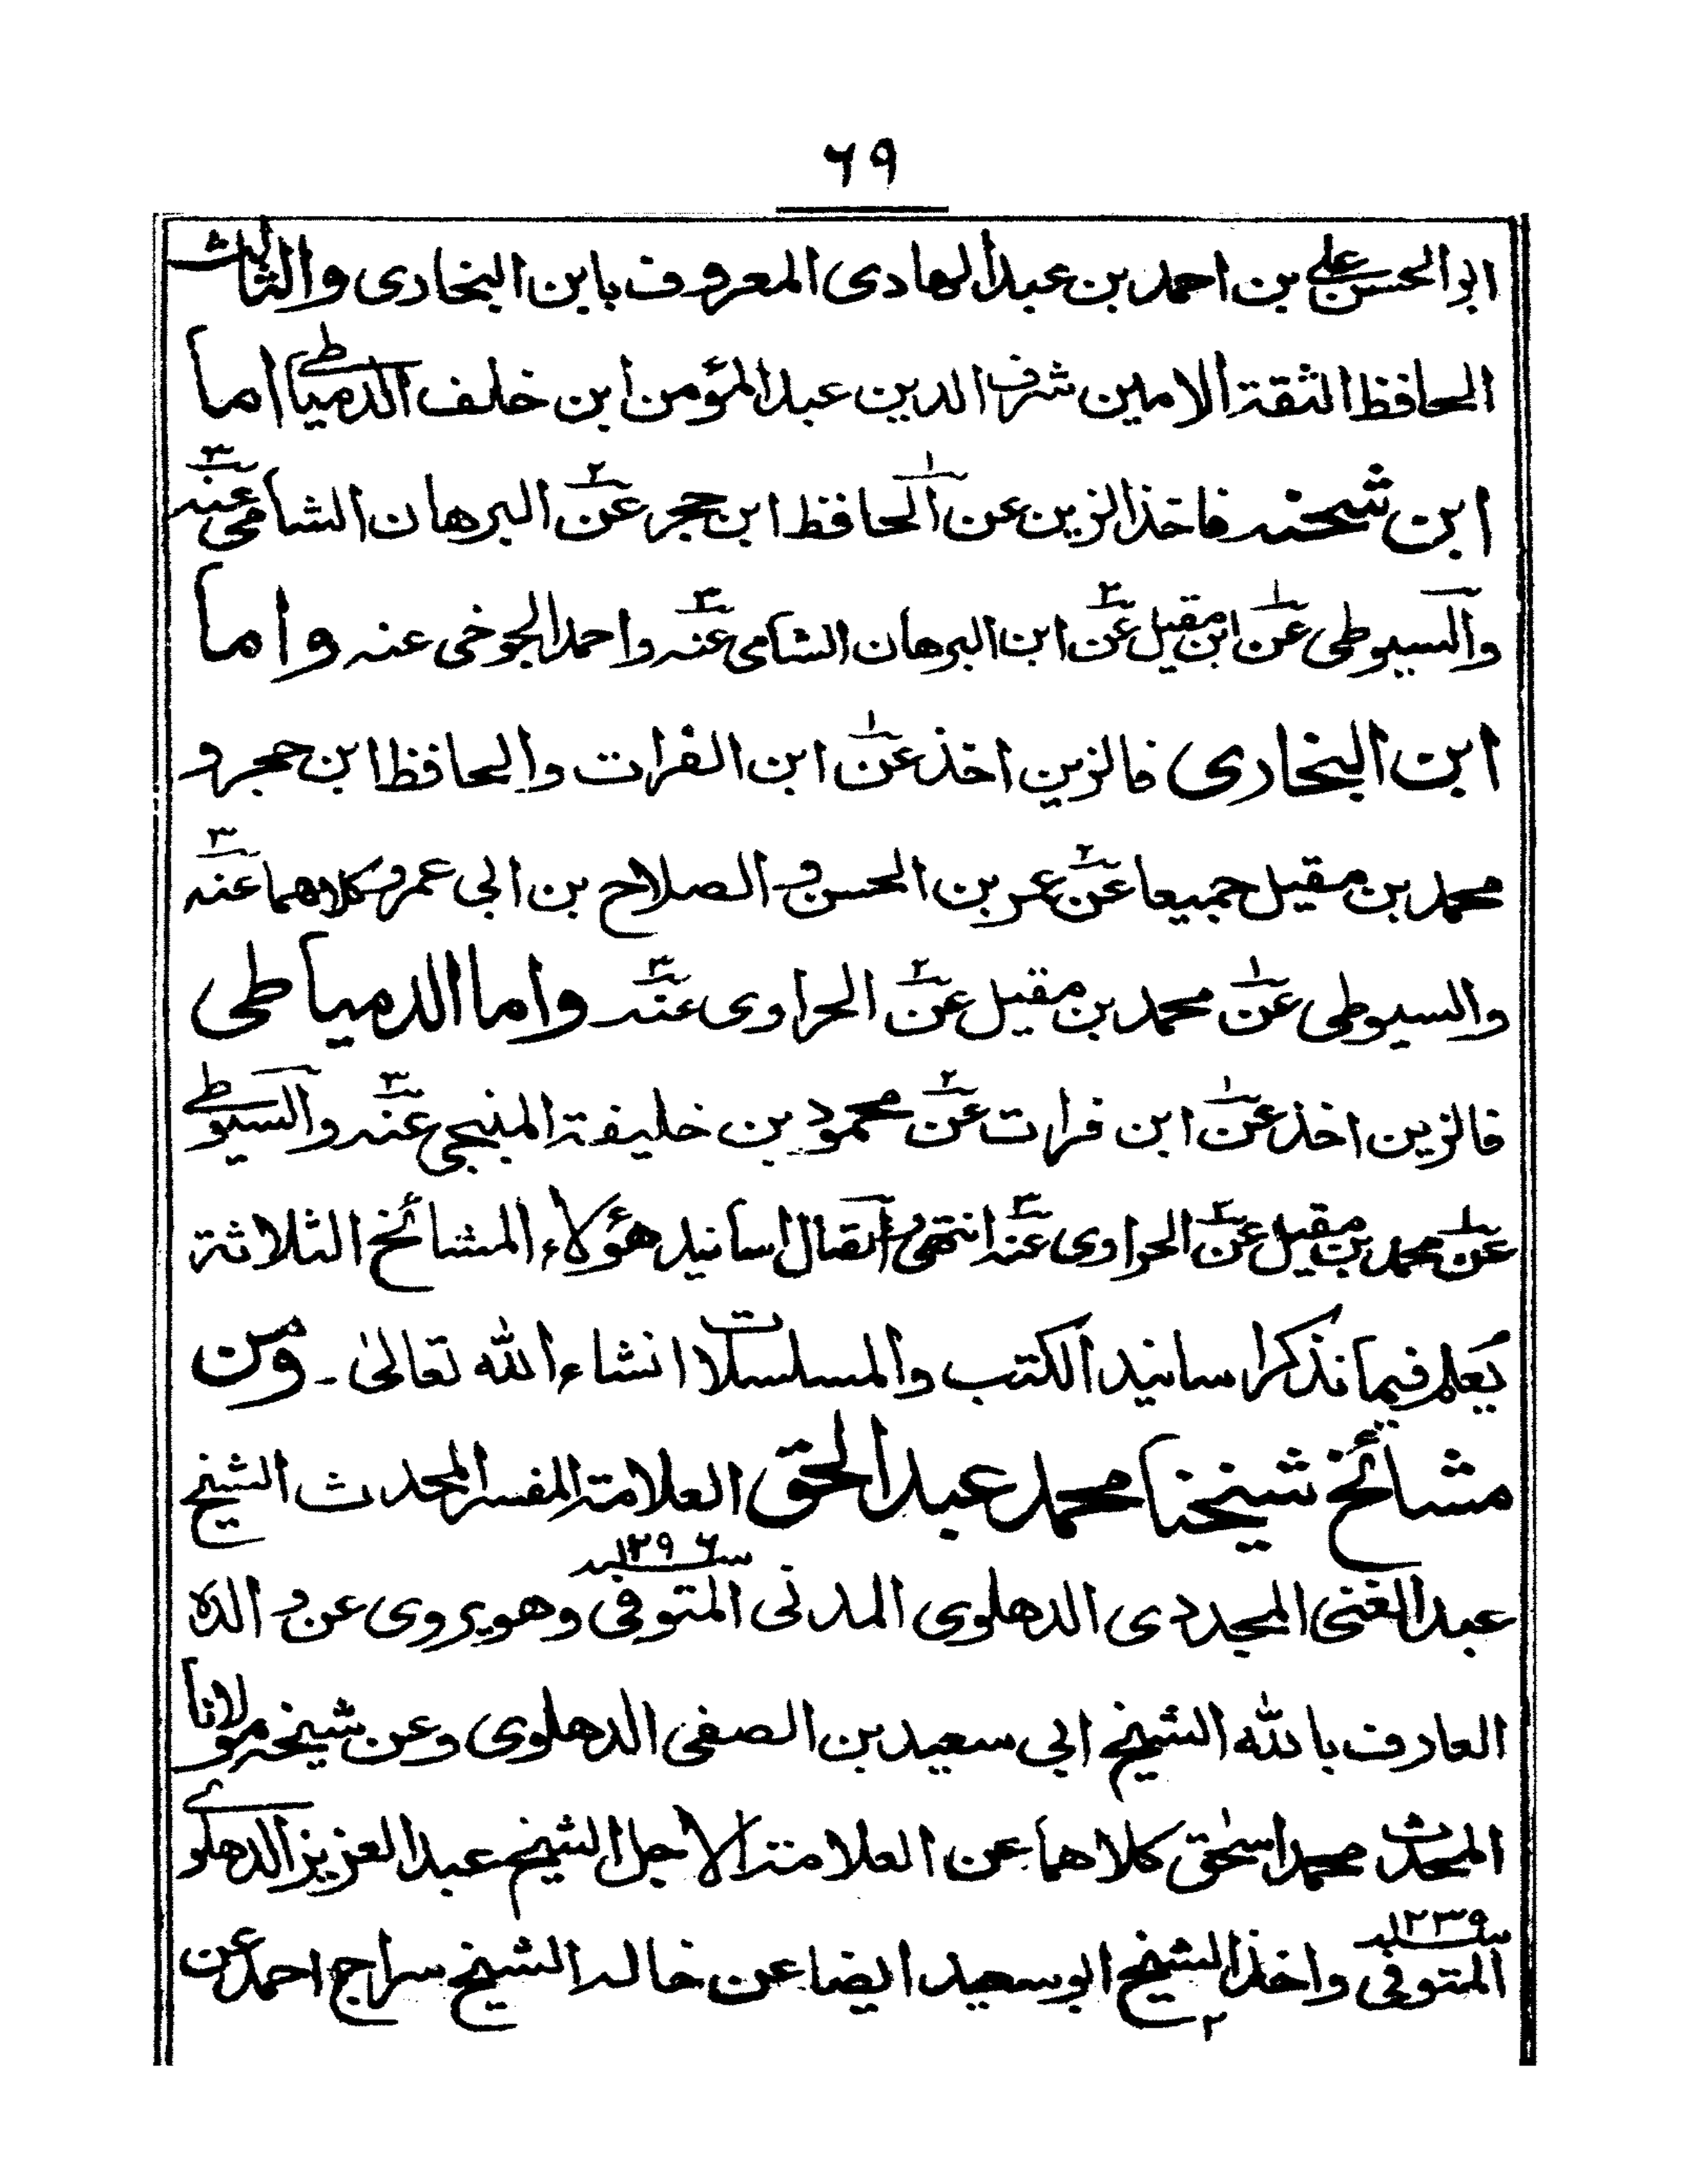 ٦٩
ابوالحسن علی بن احمد بن عبدالهادی المعروف بابن البخاری والثالث
الحافظ الثقة الامین شرف الدین عبدالمؤمن ابن خلف الدمیاطی اما
ابن شحنہ فاخذ الزین عن ۱ الحافظ ابن حجر عن ۲ البرهان الشامی عنہ ۳
والسیوطی عن ۱ ابن مقبل عن ۲ ابن البرهان الشامی عنہ ۳ واحمد الجوخی عنہ واما
ابن البخاری فالزین اخذ عن ۱ ابن الفرات والحافظ ابن حجر و
محمد بن مقبل جمیعا عن ۲ عمر بن الحسن والصلاح بن ابی عمر وکلاهما عنہ ۳
والسیوطی عن ۱ محمد بن مقبل عن ۲ الحراوی عنہ ۳ واما الدمیاطی
فالزین اخذ عن ۱ ابن فرات عن ۲ محمود بن خلیفة المنبجی عنہ ۳ والسیوطی
عن ۱ محمد بن مقبل عن ۲ الحراوی عنہ ۳ انتهی واتصال اسانید هؤلاء المشائخ الثلاثة
یعلم فیما نذکر اسانید الکتب والمسلسلات انشاء الله تعالیٰ ۔ ومن
مشائخ شیخنا محمد عبدالحق العلامة المفسر المحدث الشیخ
عبدالغنی المجددی الدهلوی المدنی المتوفی سنہ ۱۲۹۶ وهو یروی عن والده
العارف بالله الشیخ ابی سعید بن الصفی الدهلوی وعن شیخہ مولانا
المحدث محمد اسحٰق کلاهما عن العلامة الاجل الشیخ عبدالعزیز الدهلوی
المتوفی سنہ ۱۲۳۹ واخذ الشیخ ابوسعید ایضا عن خالہ الشیخ سراج احمد عن
۲